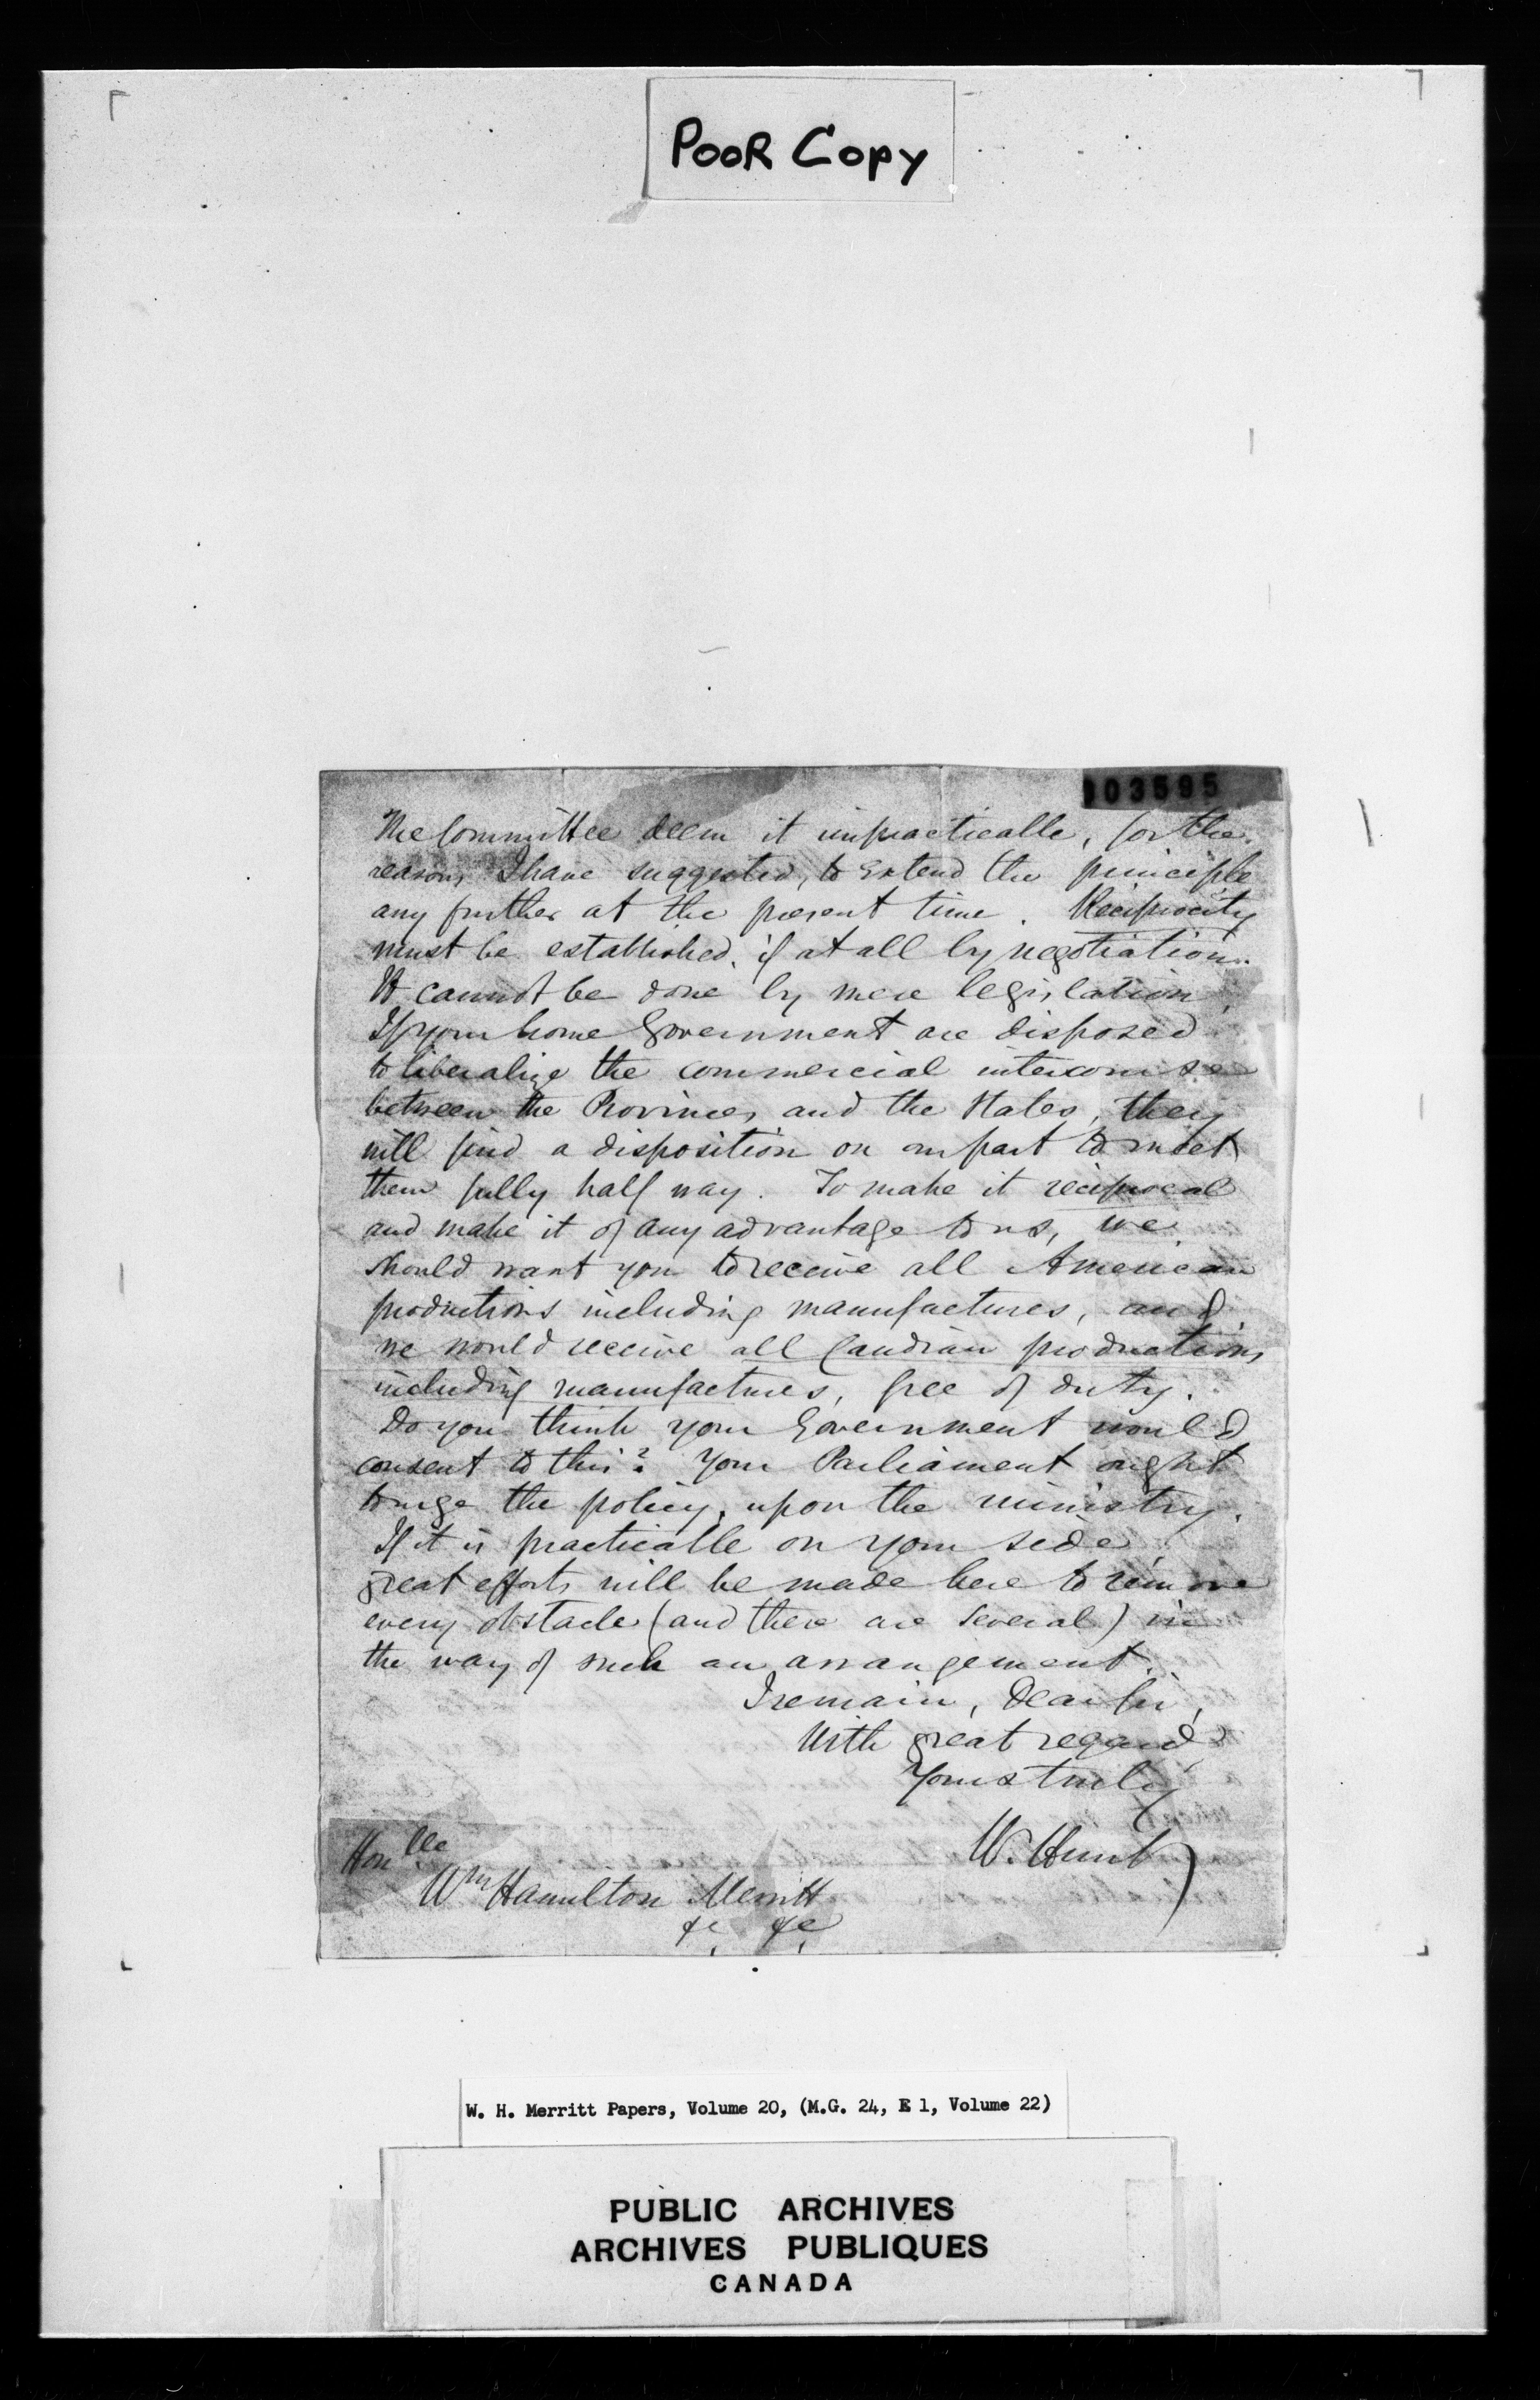 POOR COPY
103595
The Committee deem it impracticable, for the
reasons I have suggested, to extend the principle
any further at the present time. Reciprocity
must be established, if at all by negotiation.
It cannot be done by mere legislation.
If your home Government are disposed
to liberalize the commercial intercourse
between the Provinces and the States, they
will find a disposition on our part to meet
them fully half way. To make it reciprocal
and make it of any advantage to us, we
should want you to receive all American
productions including manufactures, and
we would receive all Candian productions
including manufactures, free of duty.
Do you think your Government would
consent to this? Your Parliament ought
to urge the policy, upon the ministry.
If it is practicable on your side,
great efforts will be made here to remove
every obstacle (and there are several) in
the way of such an arrangement.
I remain, Dear Sir,
With great regard
Yours truly
W. Hunt
Honble
Wm Hamilton Merritt
&c. &c.
W. H. Merritt Papers, Volume 20, (M.G. 24, E 1, Volume 22)
PUBLIC ARCHIVES
ARCHIVES PUBLIQUES
CANADA